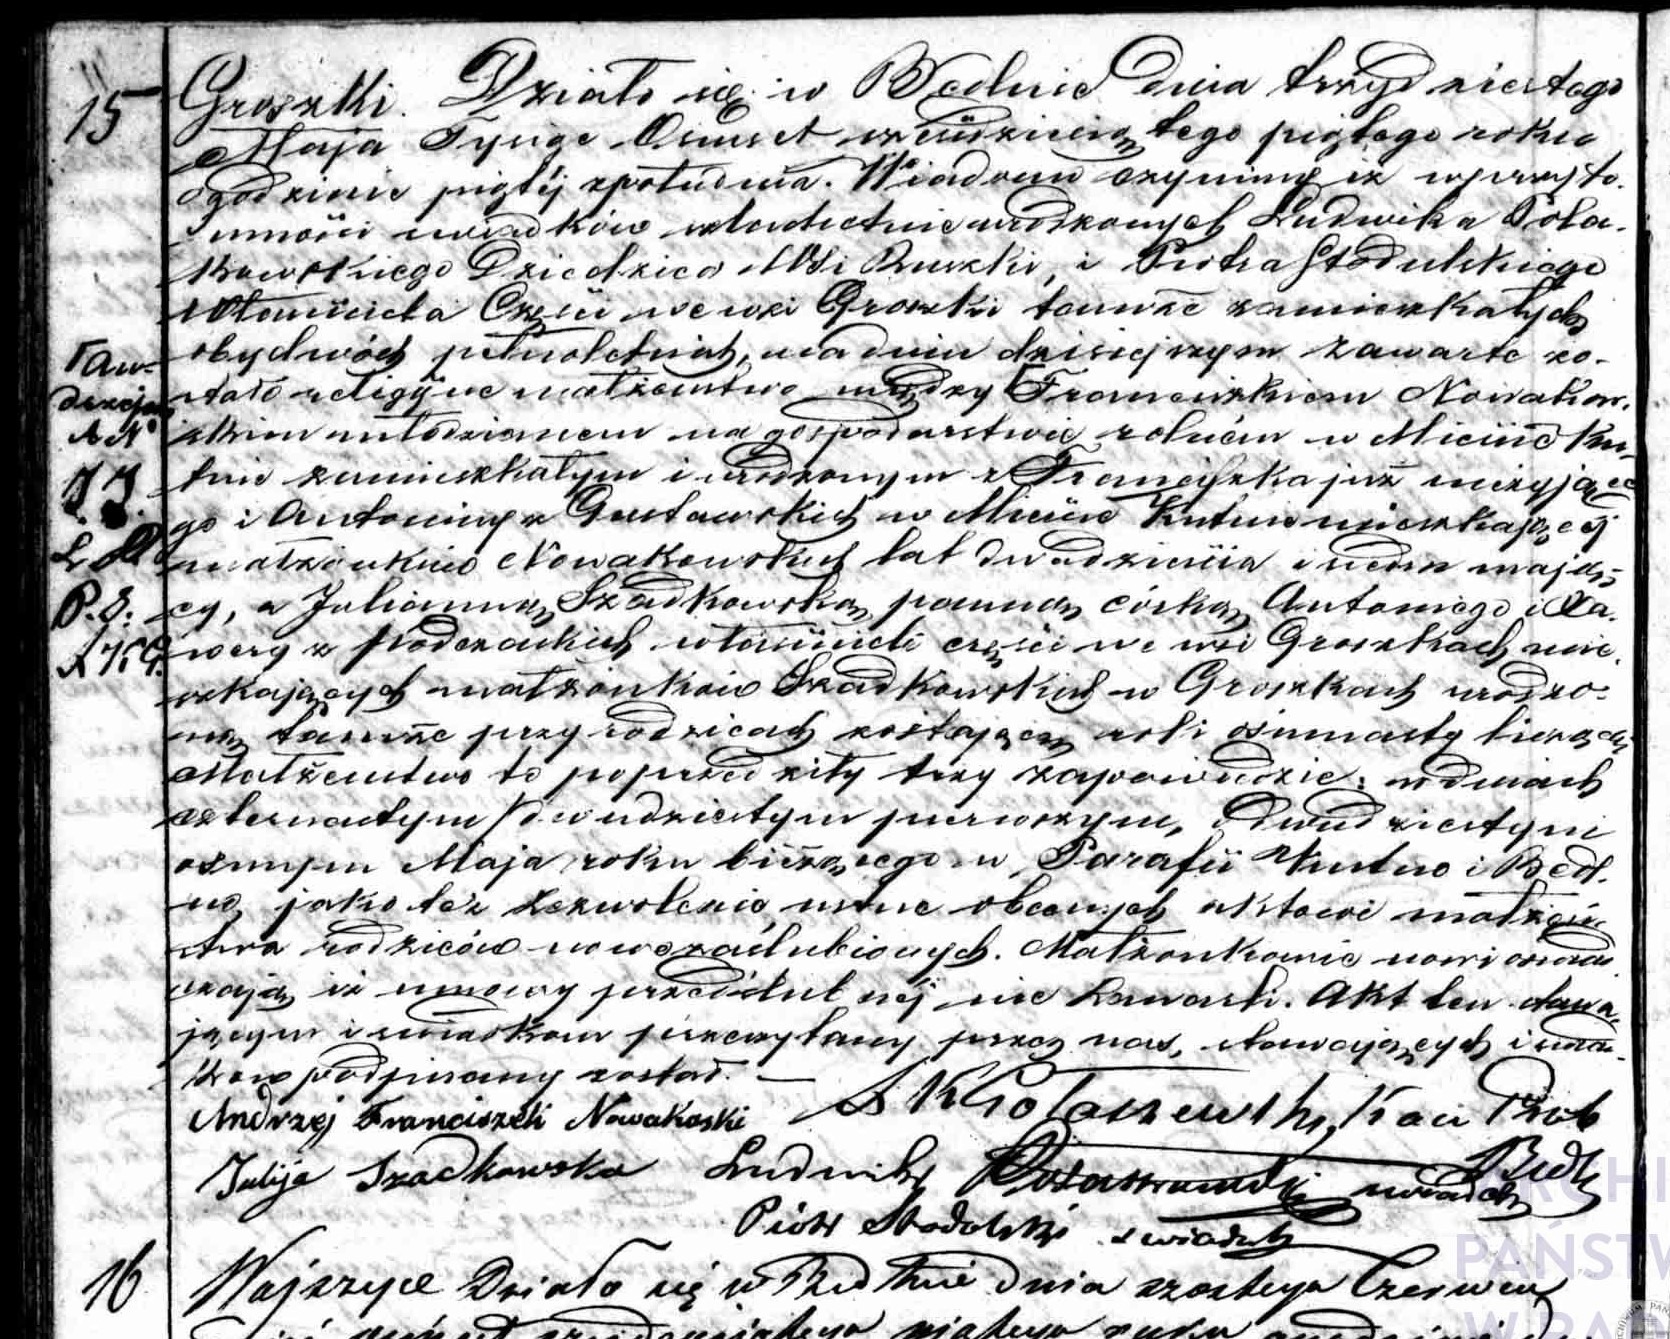 15
Groszki. Działo się w Bedlnie dnia trzydziestego
Maja Tysiąc Osmset sześdziesiątego piątego roku
o godzinie piątéj z południa. Wiadomo czynimy iż w przyto-
mności świadków szlachetnie urodzonych Ludwika
kowskiego Dziedzica Wsi Ruszki, i Piotra Stodulskiego
Właściciela Części we wsi Groszki tamże zamieszkałych
obydwóch pełnoletnich, na dniu dzisiejszym zawarte zo-
stało religijne małżeństwo między Franciszkiem Nowakow-
skim młodzianem na gospodarstwie rolném w Mieście Ku-
tnie zamieszkałym i urodzonym z Franciszka już nieżyjące
go i Antoniny z Gustawskich w Mieście Kutnie mieszkającej
małżonków Nowakowskich lat dwadzieścia i siedm mają-
cy, a Julianną Szadkowską panną córką Antoniego i Xa-
wery z właścicieli części we wsi Groszkach mie-
szkających małżonków Szadkowskich w Groszkach urodzo-
ną tamże przy rodzicach zostającą rok ośmnasty liczącą
Małżeństwo to poprzedziły trzy zapowiedzie: w dniach
czternastym dwudziestym pierwszym, dwudziestym
osmym Maja roku bieżącego w Parafii Kutno i Bedl-
no, jako też zezwolenie ustne obecnych aktowi małżeń-
stwa rodziców nowozaślubionych. Małżonkowie nowi oświad
czają iż umowy przedślubnéj nie zawarli. Akt ten stawa-
jącym i świadkom przeczytany przez nas, stawających i świad-
ków podpisany został. —
Andrzej Franciszek Nowakoski
Julija Szadkowska Ludwik świadek
Piotr Stodolski świadek
16
Wojszyce Działo się w Bedlnie dnia szóstego Czerwca
ARCHI
PAŃSTW
W RAD